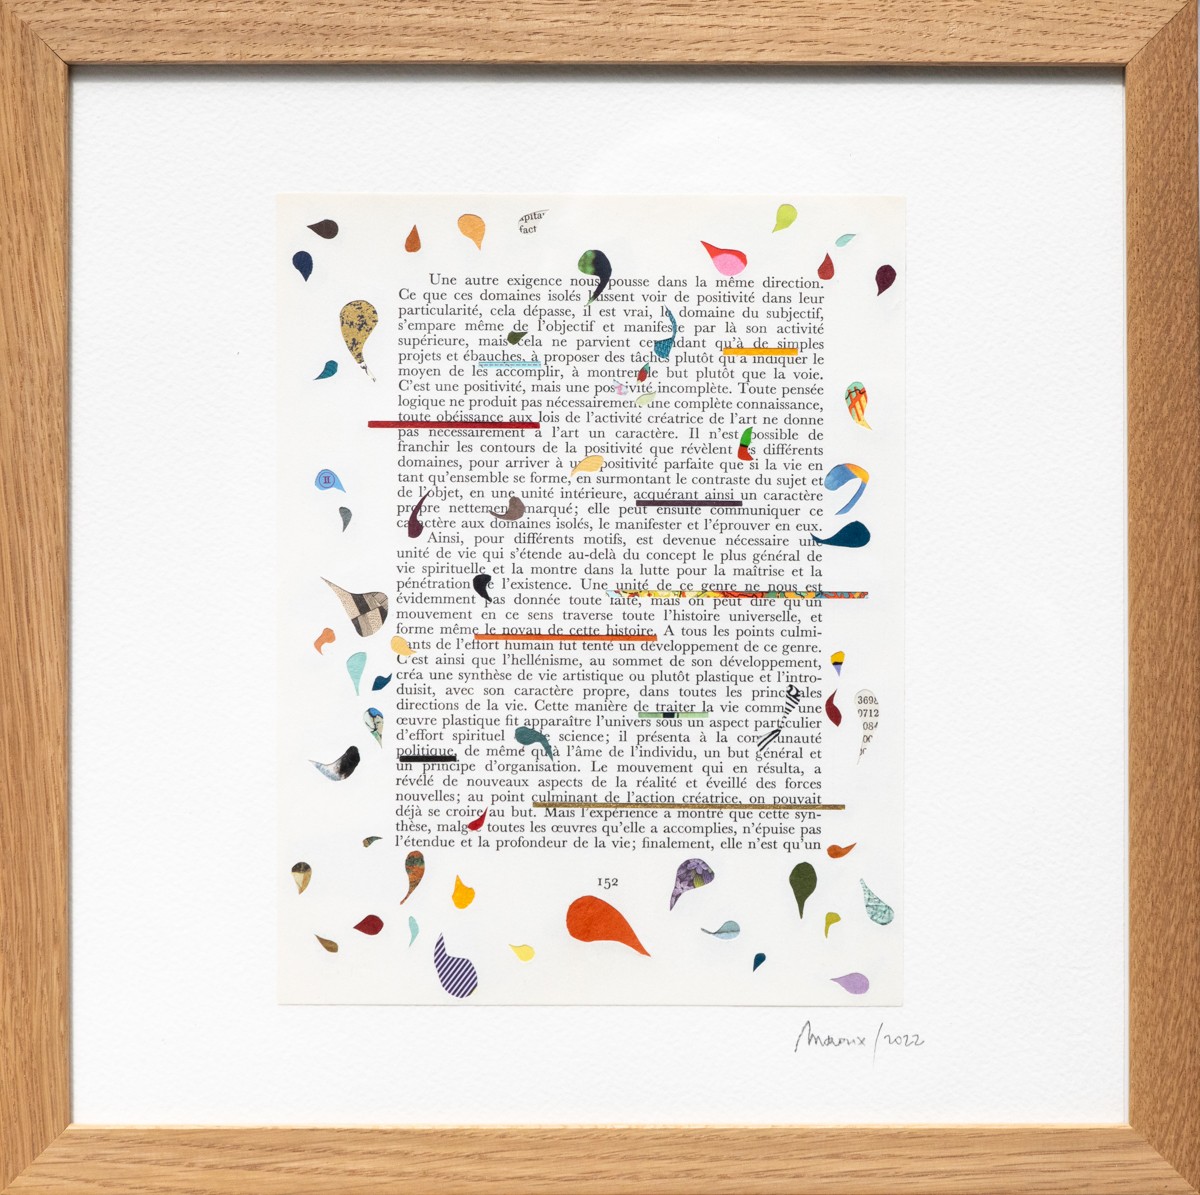 apita
fact
Une autre exigence nous pousse dans la même direction.
Ce que ces domaines isolés laissent voir de positivité dans leur
particularité, cela dépasse, il est vrai, le domaine du subjectif,
s'empare même de l'objectif et manifeste par là son activité
supérieure, mais cela ne parvient cependant qu'à de simples
projets et ébauches, à proposer des tâches plutôt qu'à indiquer le
moyen de les accomplir, à montrer le but plutôt que la voie.
C'est une positivité, mais une positivité incomplète. Toute pensée
logique ne produit pas nécessairement une complète connaissance,
toute obéissance aux lois de l'activité créatrice de l'art ne donne
pas nécessairement à l'art un caractère. Il n'est possible de
franchir les contours de la positivité que révèlent les différents
domaines, pour arriver à une positivité parfaite que si la vie en
tant qu'ensemble se forme, en surmontant le contraste du sujet et
de l'objet, en une unité intérieure, acquérant ainsi un caractère
propre nettement marqué; elle peut ensuite communiquer ce
caractère aux domaines isolés, le manifester et l'éprouver en eux.
Ainsi, pour différents motifs, est devenue nécessaire une
unité de vie qui s'étende au-delà du concept le plus général de
vie spirituelle et la montre dans la lutte pour la maîtrise et la
pénétration de l'existence. Une unité de ce genre ne nous est
évidemment pas donnée toute faite, mais on peut dire qu'un
mouvement en ce sens traverse toute l'histoire universelle, et
forme même le noyau de cette histoire. A tous les points culmi-
nants de l'effort humain fut tenté un développement de ce genre.
C'est ainsi que l'hellénisme, au sommet de son développement,
créa une synthèse de vie artistique ou plutôt plastique et l'intro-
duisit, avec son caractère propre, dans toutes les principales
directions de la vie. Cette manière de traiter la vie comme une
œuvre plastique fit apparaître l'univers sous un aspect particulier
d'effort spirituel de science; il présenta à la communauté
politique, de même qu'à l'âme de l'individu, un but général et
un principe d'organisation. Le mouvement qui en résulta, a
révélé de nouveaux aspects de la réalité et éveillé des forces
nouvelles; au point culminant de l'action créatrice, on pouvait
déjà se croire au but. Mais l'expérience a montré que cette syn-
thèse, malgré toutes les œuvres qu'elle a accomplies, n'épuise pas
l'étendue et la profondeur de la vie; finalement, elle n'est qu'un
152
369
0712
08
/2022